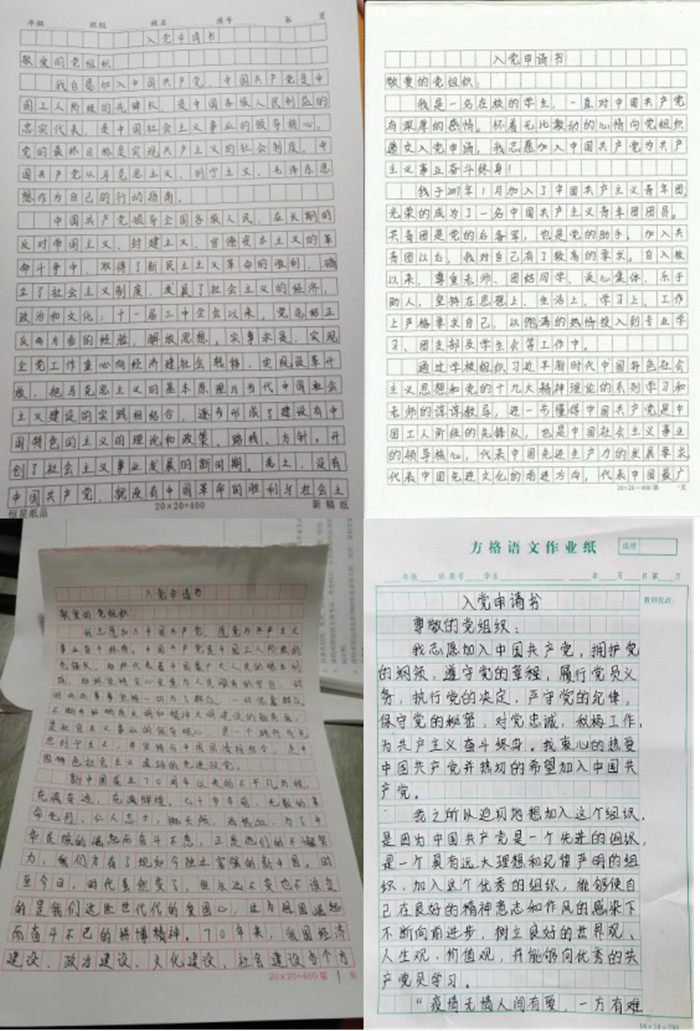 年级 班级 姓名 座号 第 页
入党申请书
敬爱的党组织:
我自愿加入中国共产党,中国共产党是中
国工人阶级的先锋队,是中国各族人民利益的
忠实代表,是中国社会主义事业的领导核心。
党的最终目标是实现共产主义的社会制度。中
国共产党从马克思主义、列宁主义、毛泽东思
想作为自己的行动指南。
中国共产党领导全国各族人民,在长期的
反对帝国主义、封建主义、官僚资本主义的革
命斗争中,取得了新民主主义革命的胜利,确
立了社会主义制度,发展了社会主义的经济,
政治和文化;十一届三中全会以来,党总结正
反两方面的经验,解放思想,实事求是,实现
全党工作重心向经济建社会转移,实现改革开
放,把马克思主义的基本原理与当代中国社会
主义建设的实践相结合,逐步形成了建设有中
国特色的主义的理论和政策、路线、方针,开
创了社会主义事业发展的新时期。总之,没有
中国共产党,就没有中国革命的胜利与社会主
恒星纸品 20×20=400 新稿纸
入党申请书
敬爱的党组织:
我是一名在校的学生,一直对中国共产党
有深厚的感情。怀着无比激动的心情向党组织
递交入党申请,我志愿加入中国共产党为共产
主义事业奋斗终身!
我于 年1月加入了中国共产主义青年团,
光荣的成为了一名中国共产主义青年团团员。
共青团是党的后备军,也是党的助手。加入共
青团以后,我对自己有了较高的要求。自入校
以来,尊重老师、团结同学、关心集体、乐于
助人,坚持在思想上、生活上、学习上、工作
上严格要求自己,以饱满的热情投入到专业学
习、团支部及学生会等工作中。
通过学校组织习近平新时代中国特色社会
主义思想和党的十九大精神理论的系列学习和
老师的谆谆教导,进一步懂得中国共产党是中
国工人阶级的先锋队,也是中国社会主义事业
的领导核心,代表中国先进生产力的发展要求,
代表中国先进文化的前进方向,代表中国最广
20×20=400 第 页
入党申请书
敬爱的党组织:
我志愿加入中国共产党,愿意为共产主义
事业奋斗终身。中国共产党是中国工人阶级的
先锋队,
是社会主义事业的领导核心,
国特色社会主义道路的先进政党。
新中国成立70周年以来的不平凡历程,
充满奋进,充满辉煌。七十多年前,无数的革
命先烈、仁人志士,抛头颅,洒热血,为了中
华民族的崛起而奋斗不息,正是他们的不懈努
力,我们才有了现如今独立富强的新中国。时
至今日,时代虽然变了,但永远不变也不该变
的是我们这些世代代的爱国心,这为祖国崛起
而奋斗不已的拼搏精神。70年来,我国经济
建设、政治建设、文化建设、社会建设各个方
20×20=400 第 1 页
方格语文作业纸
成绩
年级 班 座号 学生 年 月 日 第 页
教师批改:
入党申请书
尊敬的党组织:
我志愿加入中国共产党,拥护党
的纲领,遵守党的章程,履行党员义
务,执行党的决定,严守党的纪律,
保守党的秘密,对党忠诚,积极工作,
为共产主义奋斗终身。我衷心的热爱
中国共产党并热切的希望加入中国共
产党。
我之所以迫切地想加入这个组织,
是因为中国共产党是一个先进的组织,
是一个具有远大理想和纪律严明的组
织,加入这个优秀的组织,能够使自
己在良好的精神意志和作风的感染下
不断向前进步,树立良好的世界观、
人生观、价值观,并能够向优秀的共
产党员学习。
“疫情无情人间有爱,一方有难